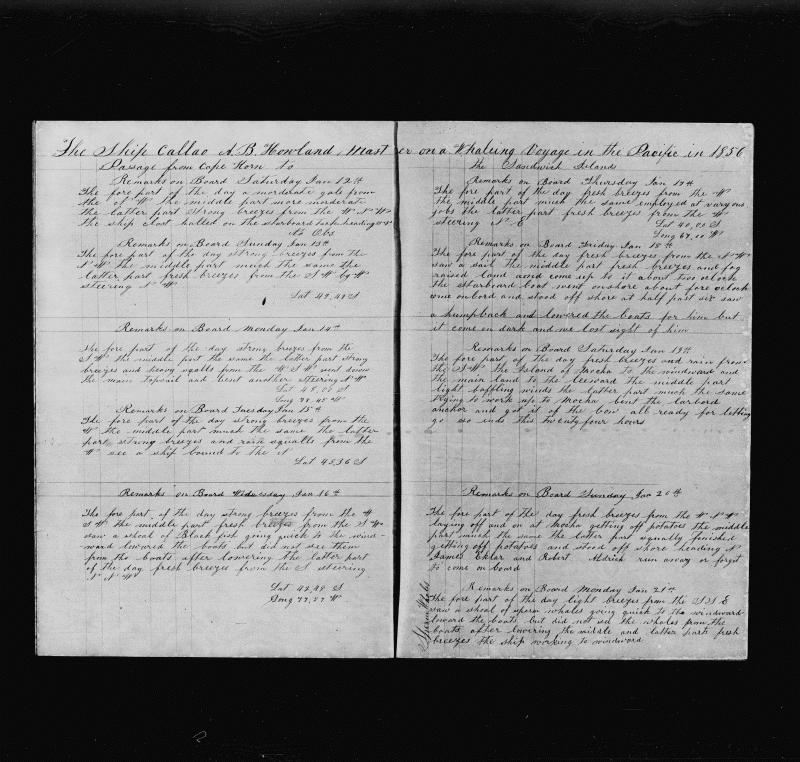 The Ship Callao A. B. Howland Master on a Whaleing Voyage in the Pacific in 1856
Passage from Cape Horn to
Remarks on Board Saturday Jan 12th
The fore part of the day a morderate gale from
the of W the middle part more morderate
the latter part strong breezes from the W.N.W
the ship clost halled on the starboard tack heading
No Obs
Remarks on Board Sunday Jan 13th
The fore part of the day strong breezes from the
N W the middle part much the same the
latter part fresh breezes from the S W by W
steering N W
Lat 49,48 S
Remarks on Board Monday Jan 14th
The fore part of the day strong breezes from the
S W the middle part the same the latter part strong
breezes and heavy squalls from the W S W sent down
the main topsail and bent another steering N W
Lat 48,05 S
Long 78,45 W
Remarks on Board Tuesday Jan 15th
The fore part of the day strong breezes from the
W the middle part much the same the latter
part strong breezes and rain squalls from the
W see a ship bound to the N
Lat 45,36 S
Remarks on Board Wednesday Jan 16th
The fore part of the day strong breezes from the W
S W the middle part fresh breezes from the S W
saw a shoal of Black fish going quick to the wind-
ward lowered the boats but did not see them
from the boats after lowering the latter part
of the day fresh breezes from the S steering
N N W
Lat 42,48 S
Long 77,57 W
the Sandwich Islands
Remarks on Board Thursday Jan 17th
The fore part of the day fresh breezes from the W
the middle part much the same employed at varyous
jobs the latter part fresh breezes from the W
steering N E
Lat 40,05 S
Long 67,00 W
Remarks on Board Friday Jan 18th
The fore part of the day fresh breezes from the N W
saw a sail the middle part fresh breezes and fog
raised land and come up to it about two oclock
the starboard boat went onshore about fore oclock
come onbord and stood off shore at half past six saw
a humpback and lowered the boats for him but
it come on dark and we lost sight of him
Remarks on Board Saturday Jan 19th
The fore part of the day fresh breezes and rain from
the S W the Island of Mocha to the windward and
the main land to the leeward the middle part
light baffling winds the latter part much the same
trying to work up to Mocha bent the larbord
anchor and got it of the bow all ready for letting
go so ends this twenty four hours
Remarks on Board Sunday Jan 20th
The fore part of the day fresh breezes from the W N W
laying off and on at Mocha getting off potatoes the middle
part much the same the latter part squally finished
getting off potatoes and stood off shore heading N
James Eklar and Robert Aldrich run away or forgot
to come on board
Remarks on Board Monday Jan 21st
The fore part of the day light breezes from the S S E
saw a shoal of sperm whales going quick to the windward
lowerd the boats but did not see the whales from the
boats after lowering the middle and latter parts fresh
breezes the ship working to windward
Sperm Whales